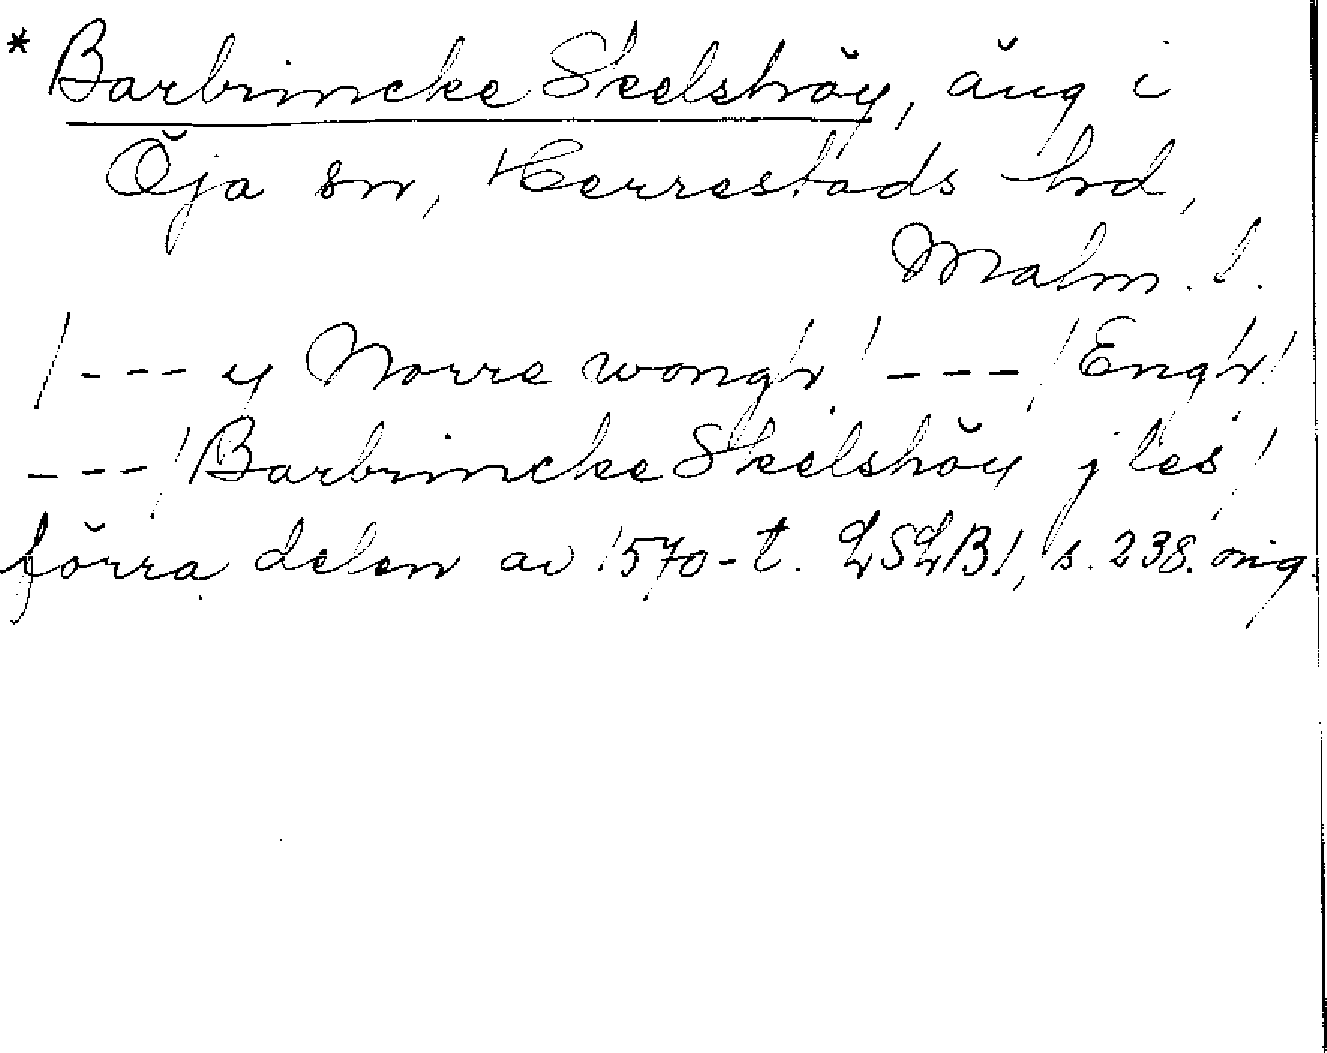 * Barbrincke Skelshöy, äng i
Öja sn, Herrestads hd,
Malm. l.
/--- y Norre wong'r! ---/ Eng'r!
---/ Barbrincke Skelshöy j les!
förra delen av 1570-t. LSLB1, s. 238. orig.